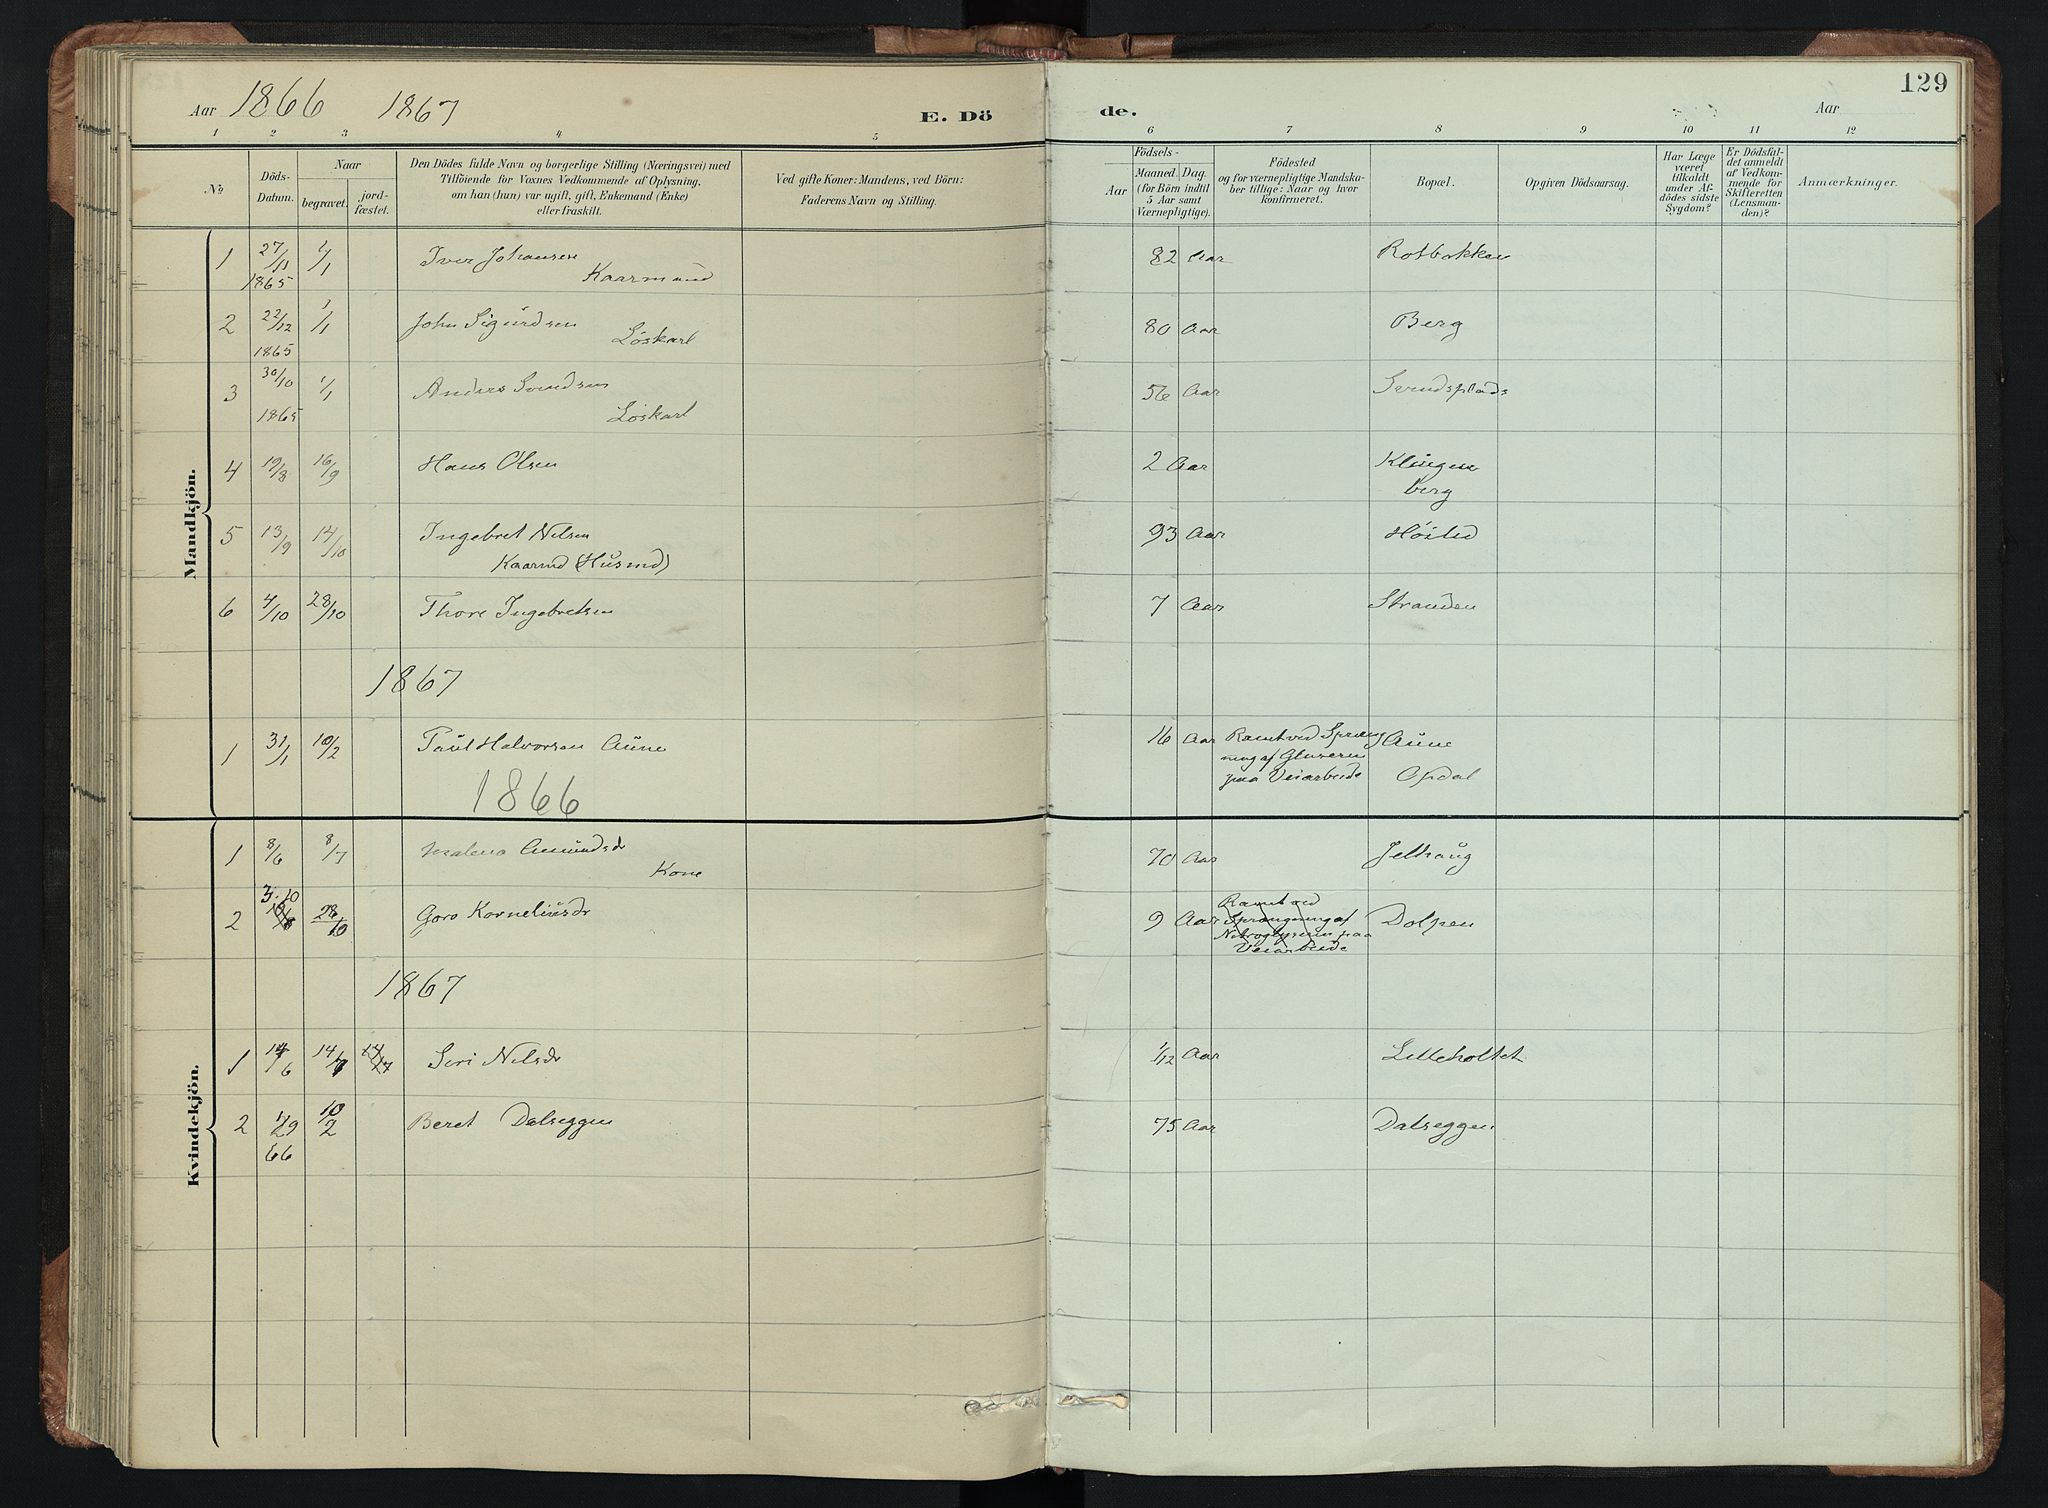 129
Aar 1866 1867 E. Dö de. Aar
1 2 3 4 5 6 7 8 9 10 11 12
№
Döds-
Datum.
Naar
begravet.
jord-
fæstet.
Den Dödes fulde Navn og borgerlige Stilling (Næringsvei) med
Tilföiende for Voxnes Vedkommende af Oplysning,
om han (hun) var ugift, gift, Enkemand (Enke)
eller fraskilt.
Ved gifte Koner: Mandens, ved Börn:
Faderens Navn og Stilling.
Födsels-
Aar
Maaned. Dag.
(for Börn indtil
5 Aar samt
Værnepligtige).
Födested
og for værnepligtige Mandska-
ber tillige: Naar og hvor
konfirmeret.
Bopæl.
Opgiven Dödsaarsag.
Har Læge
været
tilkaldt
under Af-
dödes sidste
Sygdom?
Er Dödsfal-
det anmeldt
af Vedkom-
mende for
Skifteretten
(Lensman-
den)?
Anmærkninger.
Mandkjön.
1 27/11 1/1 Iver Johansen 82 Aar Rotbakken
1865 Kaarmand
2 22/12 1/1 John Sigurdsen 80 Aar Berg
1865 Löskarl
3 30/10 1/1 Anders Svendsen 56 Aar Svendsplads
1865 Löskarl
4 19/8 16/9 Hans Olsen 2 Aar Klingen
berg
5 13/9 14/10 Ingebret Nilsen 93 Aar Höilid
Kaarmd (Husmd)
6 4/10 28/10 Thore Ingebretsen 7 Aar Stranden
1867
1 31/1 10/2 Paul Halvorsen Aune 16 Aar Ramt ved Spræng Aune
ning af Gluseren
paa Veiarbeide Opdal
1866
Kvindekjön.
1 8/6 8/7 Malena Amundsdr 70 Aar Jelhaug
Kone
3.10
2 28/10 Goro Korneliusdr 9 Aar Dolpen
Ramt ved
Sprængning af
Nitroglyserin paa
Veiarbeide
1867
1 14/6 14/7 14/7 Siri Nilsdr 1/12 Aar Lilleholtet
2 1/29 10/2 Beret Dalseggen 75 Aar Dalseggen
66